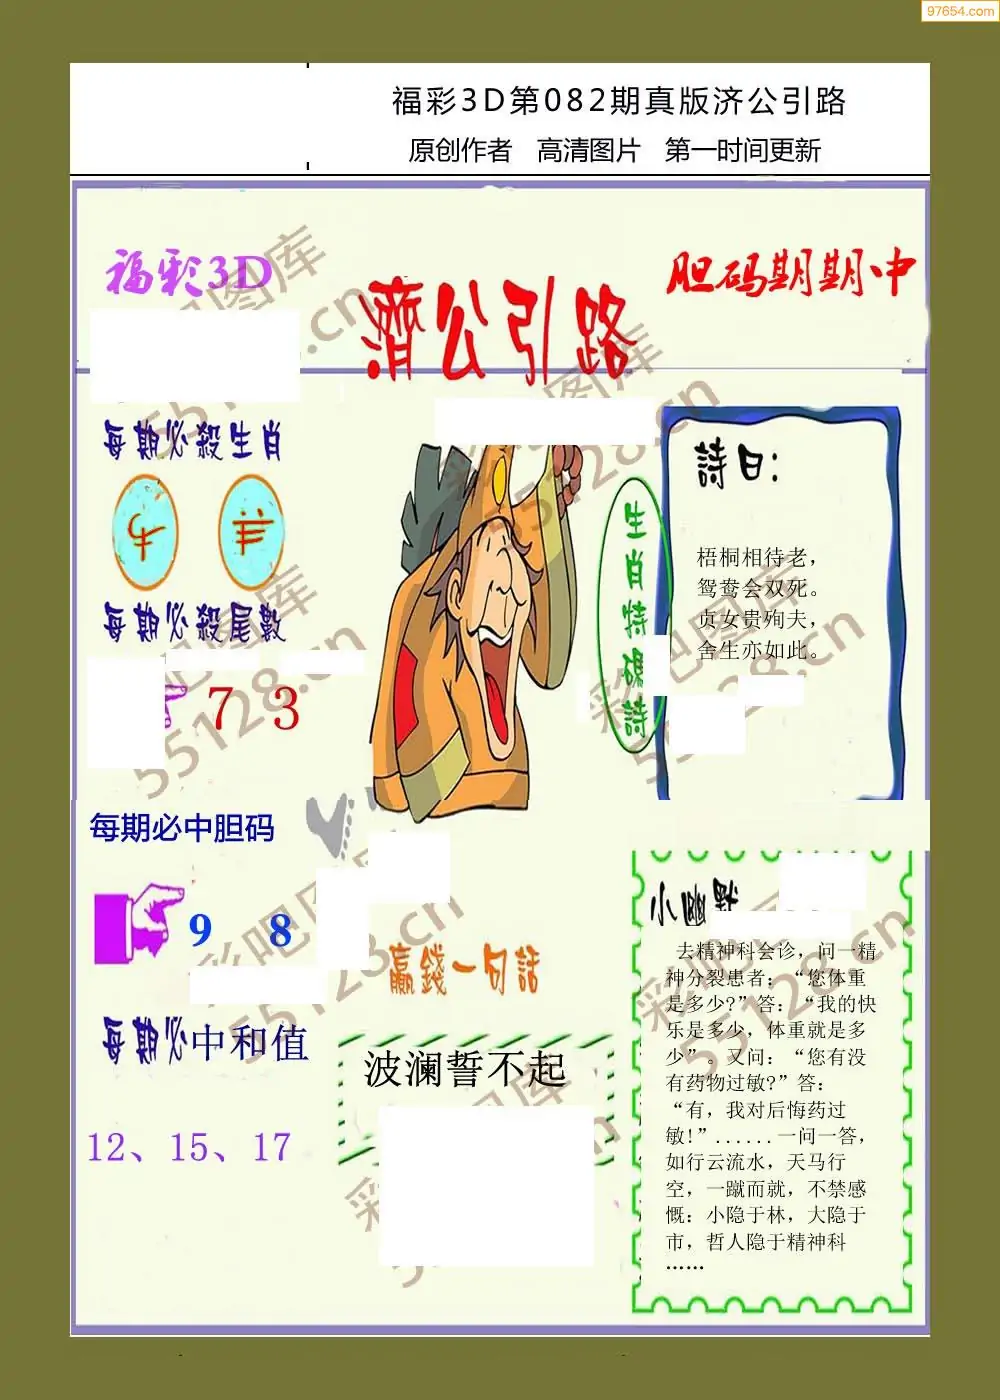 97654.com
福彩3D第082期真版济公引路
原创作者 高清图片 第一时间更新
福彩3D
濟公引路
胆码期期中
每期必殺生肖
牛 羊
每期必殺尾數
7 3
每期必中胆码
9 8
每期必中和值
12、15、17
生肖特碼詩
詩曰:
梧桐相待老,
鸳鸯会双死。
贞女贵殉夫,
舍生亦如此。
贏錢一句話
波澜誓不起
小幽默
去精神科会诊，问一精
神分裂患者：“您体重
是多少?”答：“我的快
乐是多少，体重就是多
少”。又问：“您有没
有药物过敏?”答：
“有，我对后悔药过
敏!”......一问一答，
如行云流水，天马行
空，一蹴而就，不禁感
慨：小隐于林，大隐于
市，哲人隐于精神科
……
彩吧图库
55128.cn